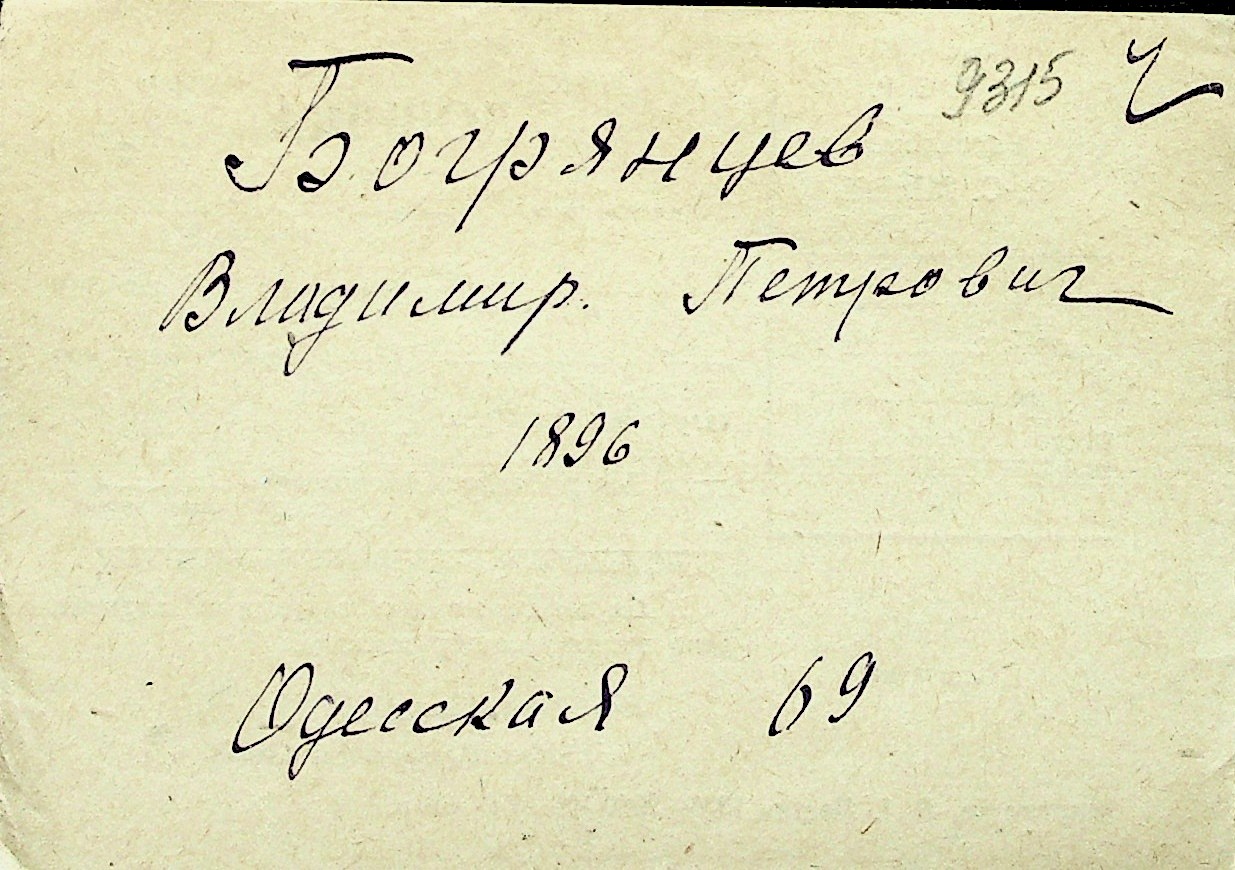 9315 Ч
Богрянцев
Владимир. Петрович
1896
Одесская 69